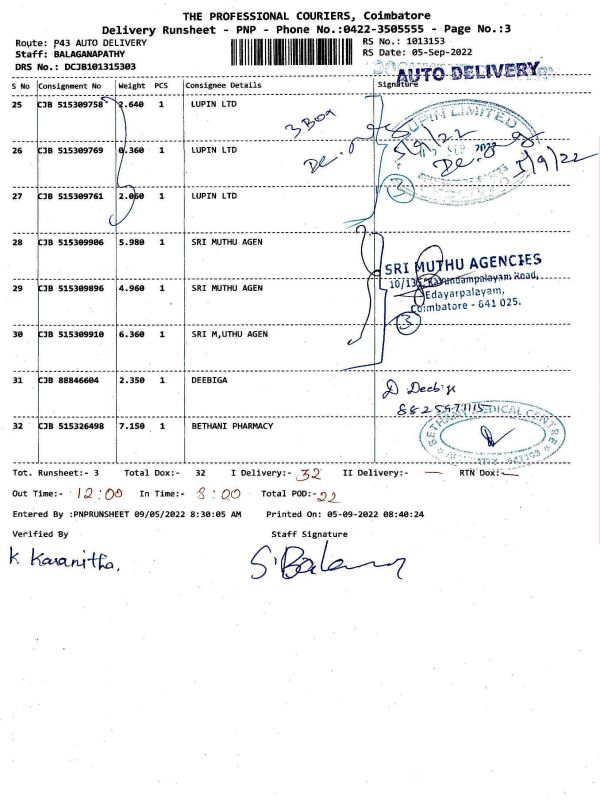 THE PROFESSIONAL COURIERS, Coimbatore
Delivery Runsheet - PNP - Phone No.:0422-3505555 - Page No.:3
Route: P43 AUTO DELIVERY
RS No.: 1013153
Staff: BALAGANAPATHY
RS Date: 05-Sep-2022
DRS No.: DCJB101315303
AUTO DELIVERY
S No Consignment No Weight PCS Consignee Details Signature
25 CJB 515309758 2.640 1 LUPIN LTD
3 Box
LUPIN LIMITED
5/9/22
26 CJB 515309769 0.360 1 LUPIN LTD
5/9/22
3
27 CJB 515309761 2.060 1 LUPIN LTD
28 CJB 515309906 5.980 1 SRI MUTHU AGEN
SRI MUTHU AGENCIES
10/135, Kavundampalayam Road,
Edayarpalayam,
Coimbatore - 641 025.
29 CJB 515309896 4.960 1 SRI MUTHU AGEN
3
30 CJB 515309910 6.360 1 SRI M,UTHU AGEN
31 CJB 88846604 2.350 1 DEEBIGA
D Deebiga
32 CJB 515326498 7.150 1 BETHANI PHARMACY
BETHANY MEDICAL CENTRE
Tot. Runsheet:- 3 Total Dox:- 32 I Delivery:- 32 II Delivery:- — RTN Dox:-
Out Time:- 12:00 In Time:- 8:00 Total POD:- 22
Entered By :PNPRUNSHEET 09/05/2022 8:30:05 AM Printed On: 05-09-2022 08:40:24
Verified By Staff Signature
K. Kavanitha.